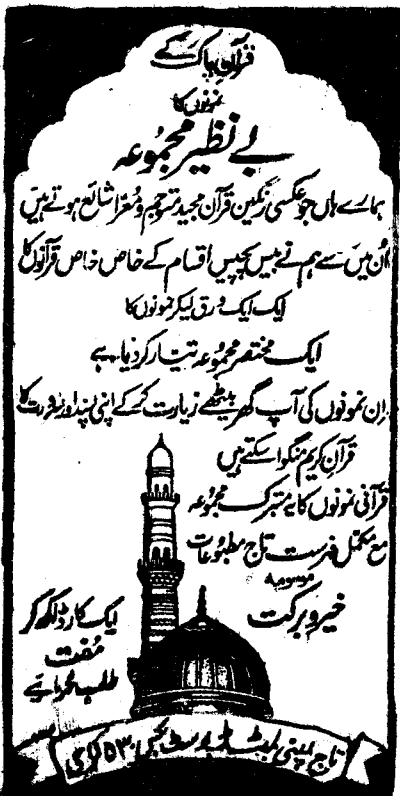 قرآنِ پاک کے
نمونوں کا
بے نظیر مجموعہ
ہمارے ہاں جو عکسی رنگین قرآن مجید مترجم و معرّا شائع ہوتے ہیں
اُن میں سے ہم نے بیس پچیس اقسام کے خاص خاص قرآنوں کا
ایک ایک ورق لیکر نمونوں کا
ایک مختصر مجموعہ تیار کر دیا ہے
اِن نمونوں کی آپ گھر بیٹھے زیارت کر کے اپنی پسند اور ضرورت کا
قرآن کریم منگوا سکتے ہیں
قرآنی نمونوں کا یہ متبرک مجموعہ
مع مکمل فہرست تاج مطبوعات
موسومہ
خیر و برکت
ایک کارڈ لکھ کر
مفت
طلب فرمایئے
تاج کمپنی لمیٹڈ پوسٹ بکس ۵۳۰ کراچی